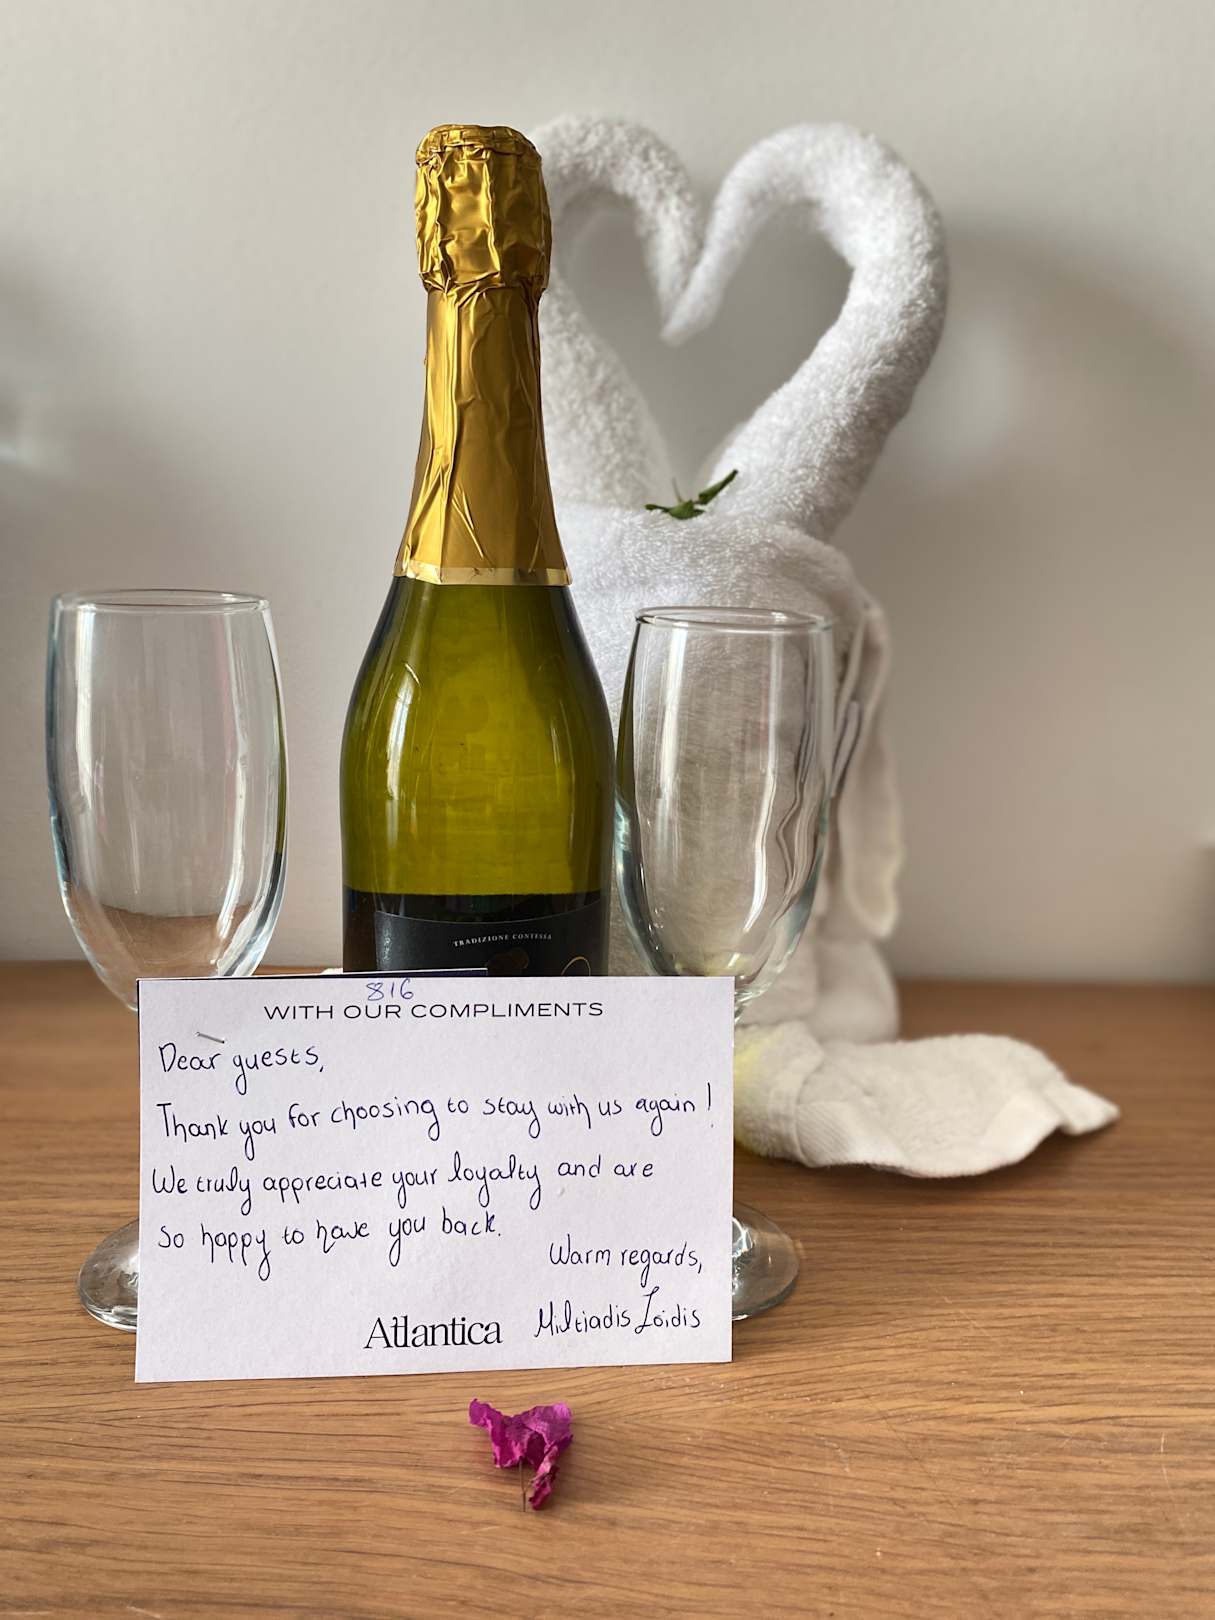 TRADIZIONE CONTESSA
816
WITH OUR COMPLIMENTS
Dear guests,
Thank you for choosing to stay with us again!
We truly appreciate your loyalty and are
so happy to have you back.
Warm regards,
Atlantica
Miltiadis Zoidis